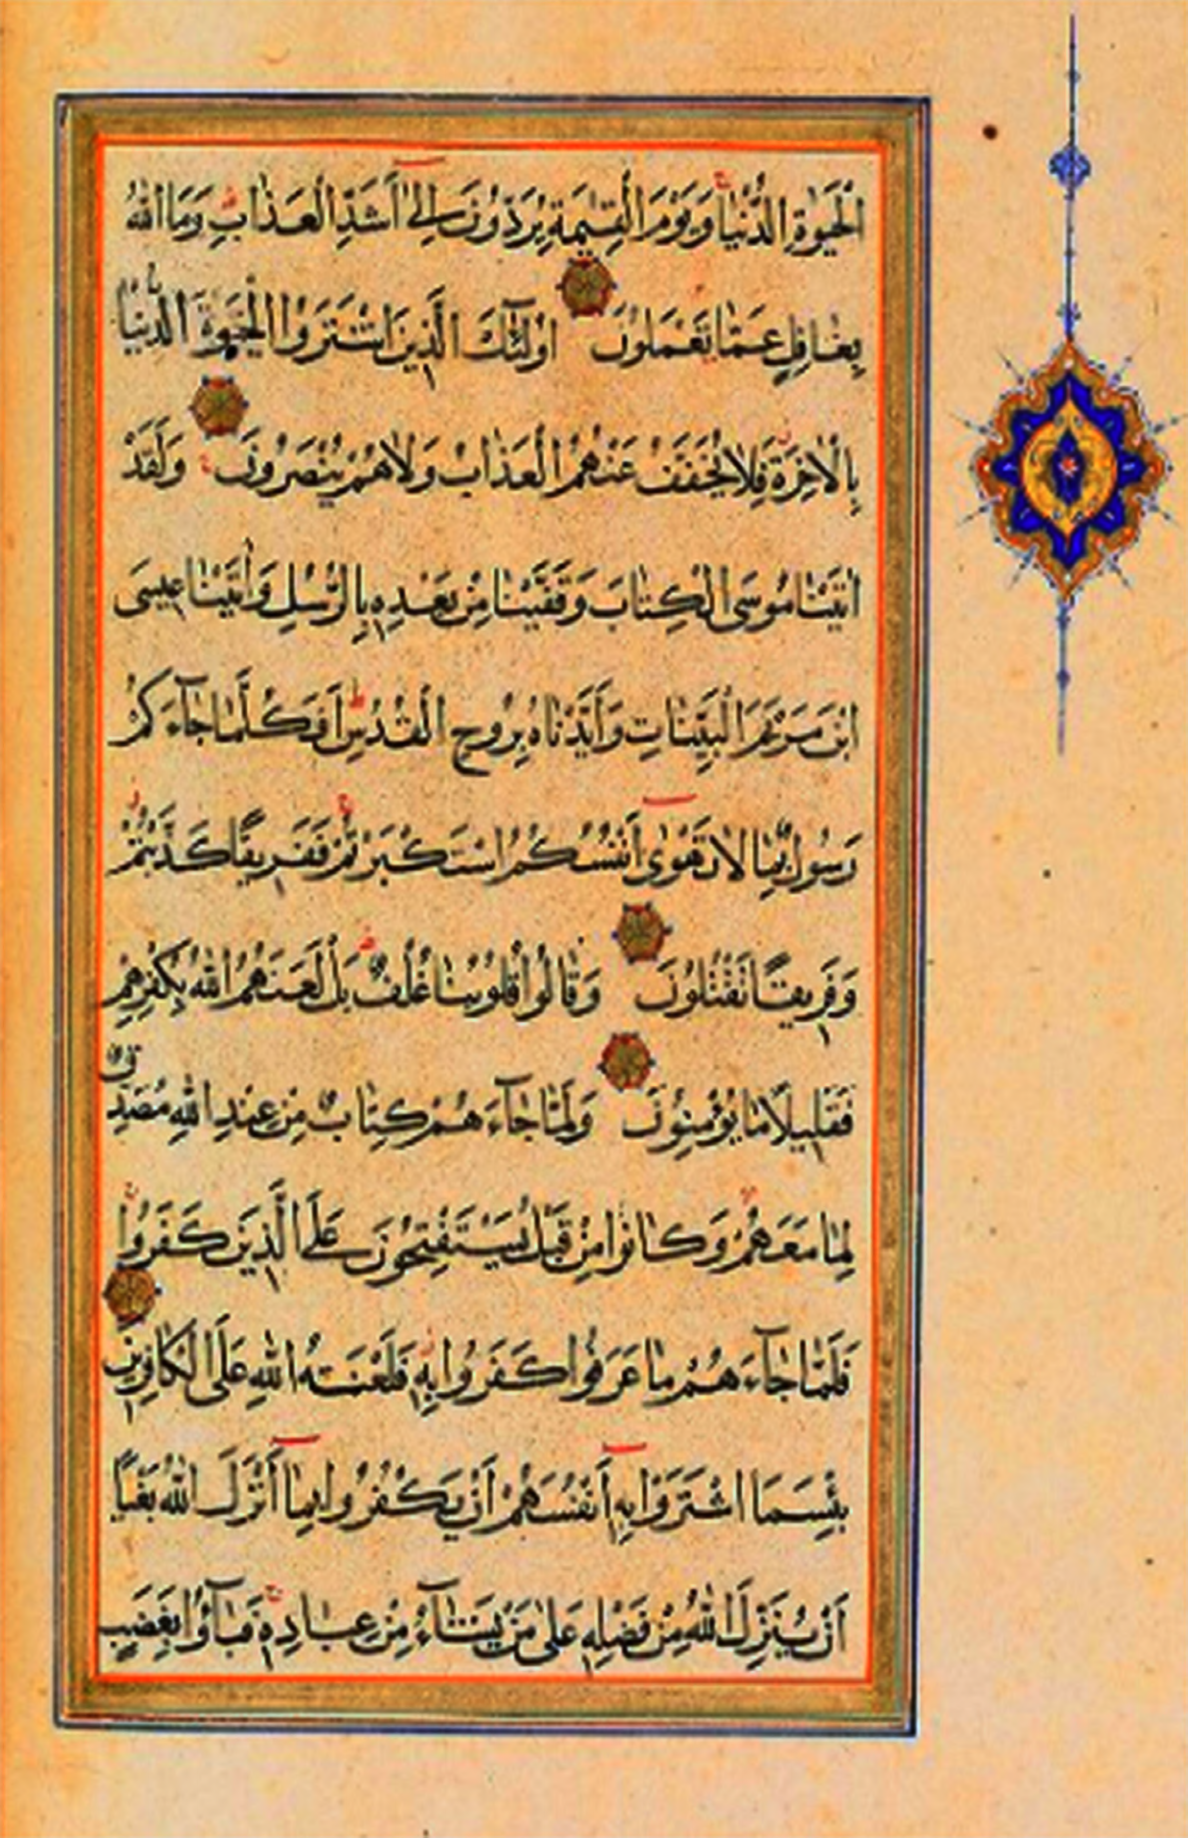 الْحَيٰوةِ الدُّنْيَا وَيَوْمَ الْقِيٰمَةِ يُرَدُّونَ إِلٰى أَشَدِّ الْعَذَابِ وَمَا اللّٰهُ
بِغَافِلٍ عَمَّا تَعْمَلُونَ اُولٰٓئِكَ الَّذِينَ اشْتَرَوُا الْحَيٰوةَ الدُّنْيَا
بِالْاٰخِرَةِ فَلَا يُخَفَّفُ عَنْهُمُ الْعَذَابُ وَلَا هُمْ يُنْصَرُونَ وَلَقَدْ
اٰتَيْنَا مُوسَى الْكِتَابَ وَقَفَّيْنَا مِنْ بَعْدِهِ بِالرُّسُلِ وَاٰتَيْنَا عِيسَى
ابْنَ مَرْيَمَ الْبَيِّنَاتِ وَأَيَّدْنَاهُ بِرُوحِ الْقُدُسِ أَفَكُلَّمَا جَآءَكُمْ
رَسُولٌ بِمَا لَا تَهْوٰى أَنْفُسُكُمُ اسْتَكْبَرْتُمْ فَفَرِيقًا كَذَّبْتُمْ
وَفَرِيقًا تَقْتُلُونَ وَقَالُوا قُلُوبُنَا غُلْفٌ بَلْ لَعَنَهُمُ اللّٰهُ بِكُفْرِهِمْ
فَقَلِيلًا مَا يُؤْمِنُونَ وَلَمَّا جَآءَهُمْ كِتَابٌ مِنْ عِنْدِ اللّٰهِ مُصَدِّقٌ
لِمَا مَعَهُمْ وَكَانُوا مِنْ قَبْلُ يَسْتَفْتِحُونَ عَلَى الَّذِينَ كَفَرُوا
فَلَمَّا جَآءَهُمْ مَا عَرَفُوا كَفَرُوا بِهِ فَلَعْنَةُ اللّٰهِ عَلَى الْكَافِرِينَ
بِئْسَمَا اشْتَرَوْا بِهِ أَنْفُسَهُمْ أَنْ يَكْفُرُوا بِمَا أَنْزَلَ اللّٰهُ بَغْيًا
أَنْ يُنَزِّلَ اللّٰهُ مِنْ فَضْلِهِ عَلٰى مَنْ يَشَآءُ مِنْ عِبَادِهِ فَبَآؤُا بِغَضَبٍ